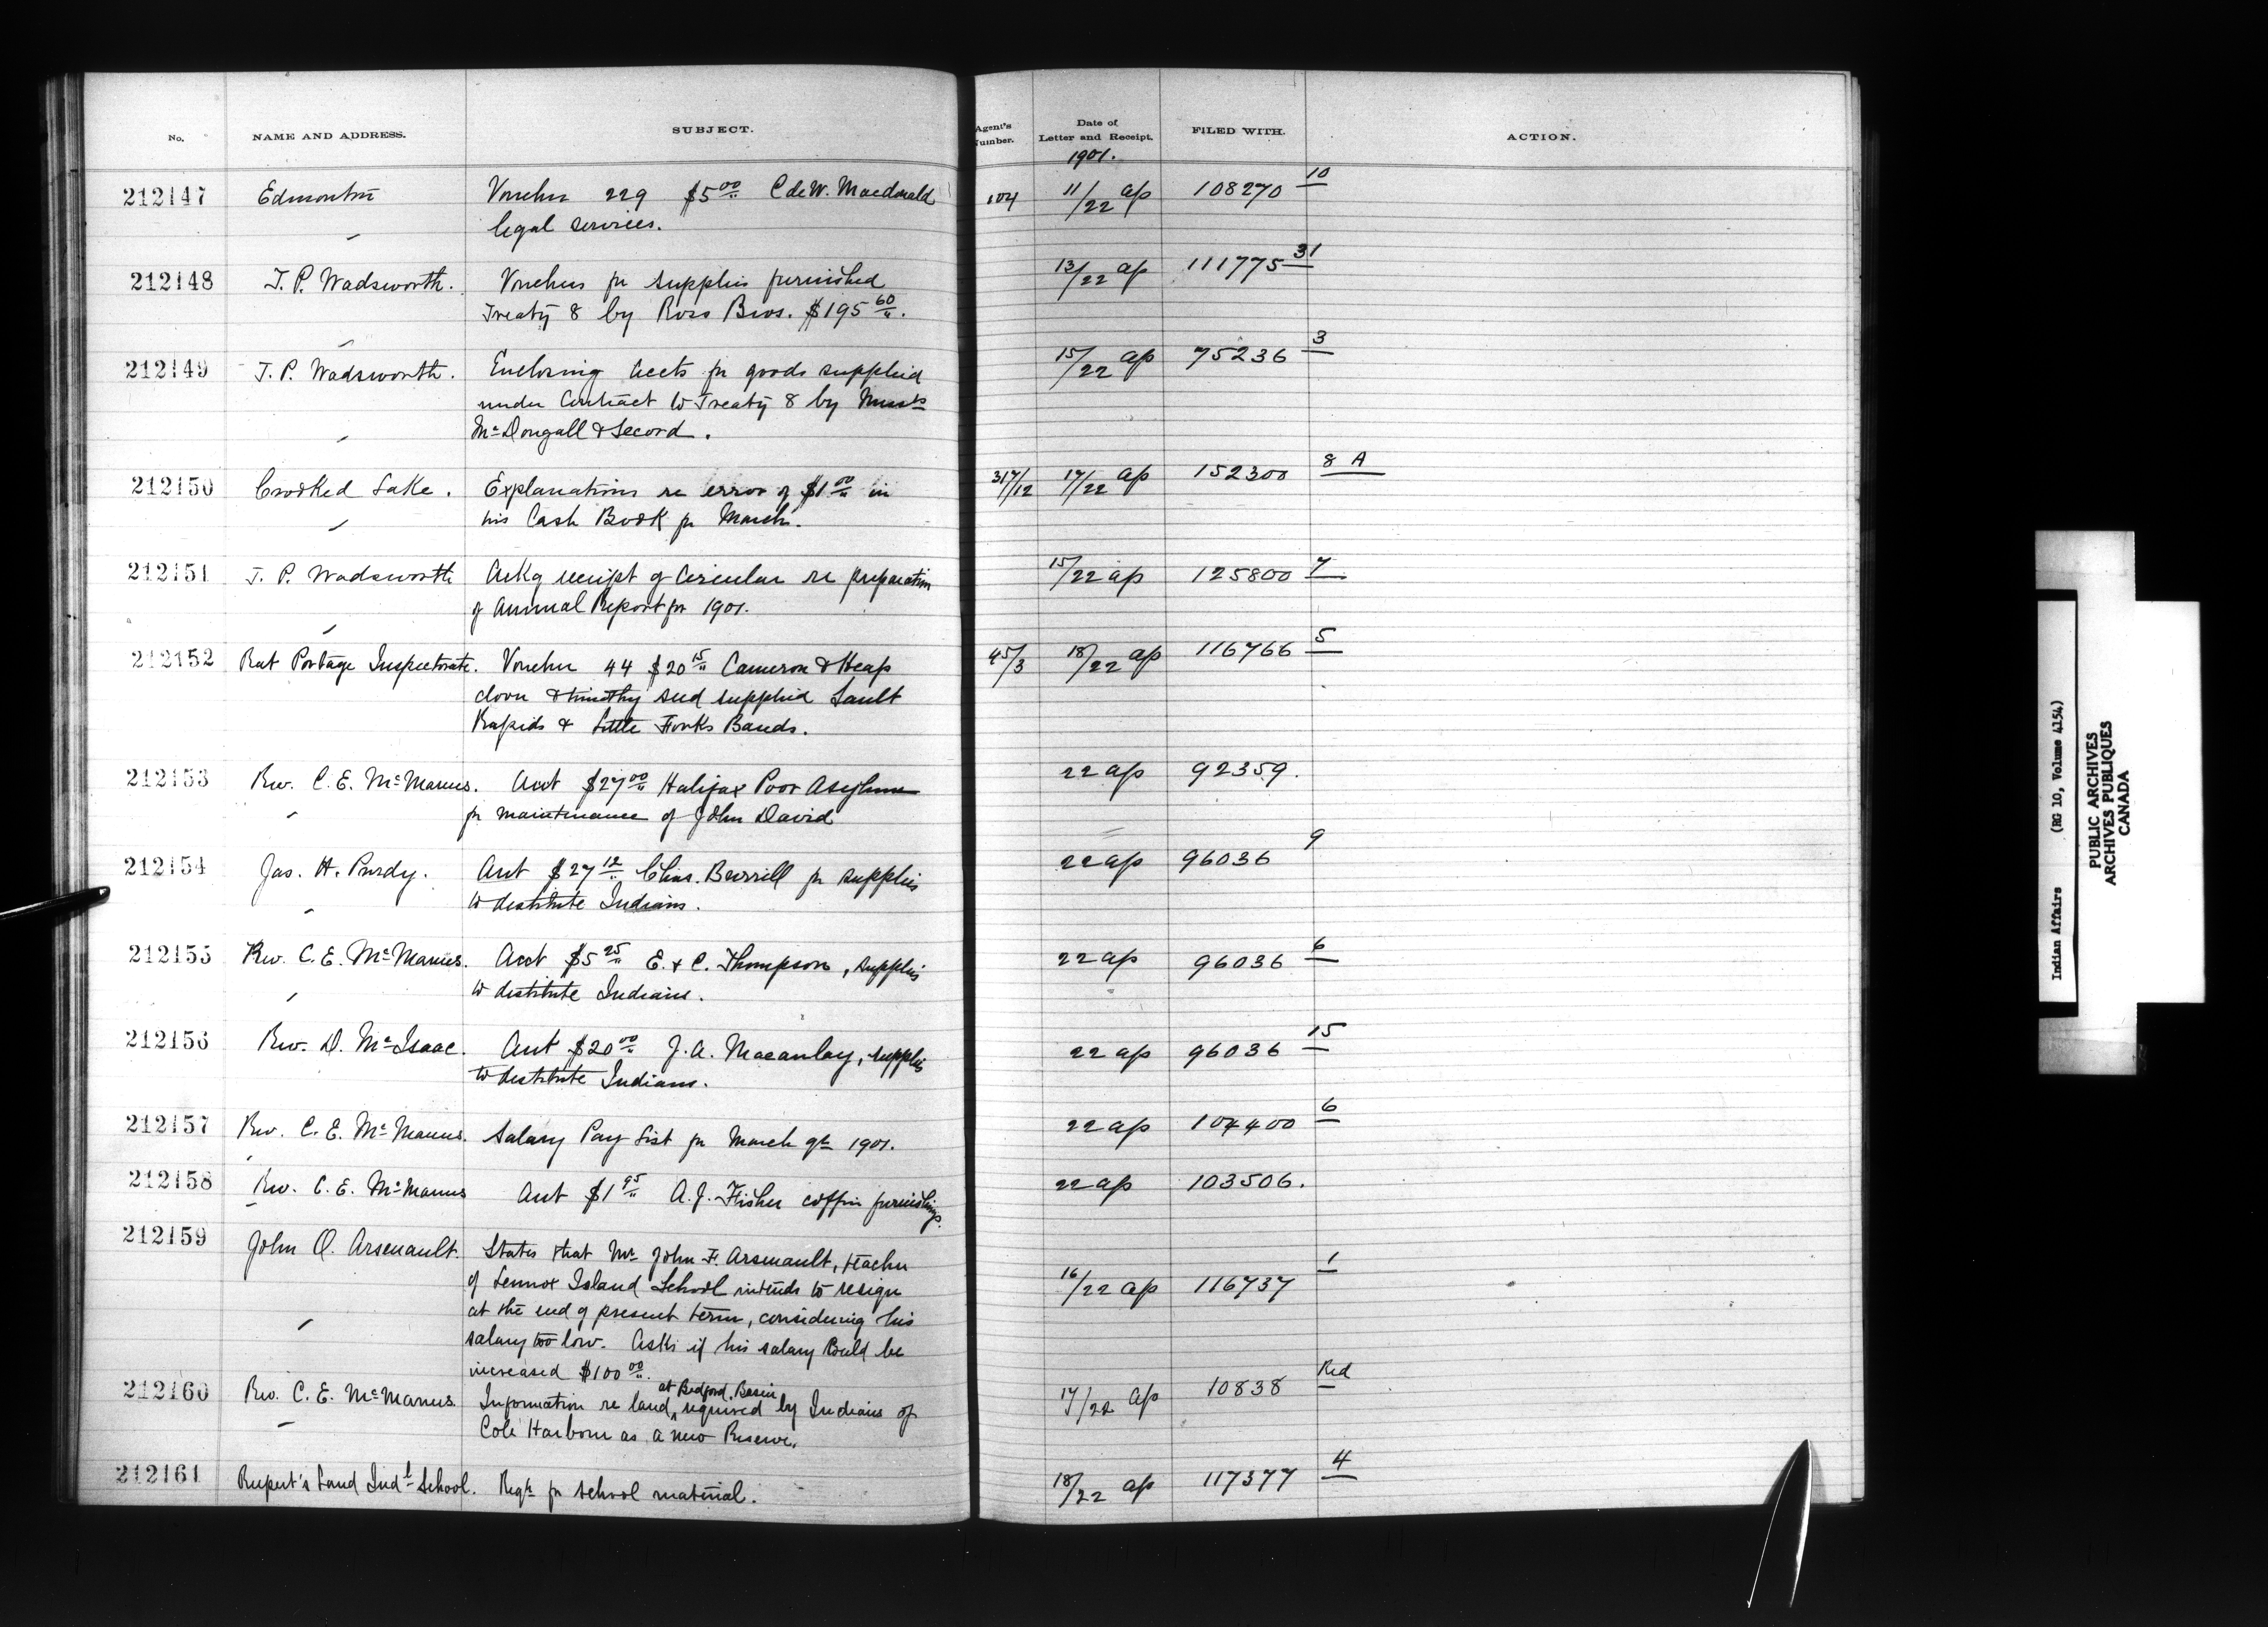 No. NAME AND ADDRESS. SUBJECT. Agent's Number. Date of Letter and Receipt. FILED WITH. ACTION.
1901.
212147 Edmonton Voucher 229 $5 00 C de W. Macdonald 104 11/22 ap 108270 10
legal services.
212148 T. P. Wadsworth. Vouchers for supplies furnished 13/22 ap 111775 31
Treaty 8 by Ross Bros. $195 60.
212149 T. P. Wadsworth. Enclosing accts for goods supplied 15/22 ap 75236 3
under Contract to Treaty 8 by Messrs
McDougall & Secord.
212150 Crooked Lake. Explanations re error of $1 00 in 317/12 17/22 ap 152300 8 A
his Cash Book for March.
212151 T. P. Wadsworth Ackg receipt of Circular re preparation 15/22 ap 125800 7
of Annual Report for 1901.
212152 Rat Portage Inspectorate. Voucher 44 $20 15 Cameron & Heap 45/3 18/22 ap 116766 5
clover & timothy seed supplied Sault
Rapids & Little Forks Bands.
212153 Rev. C. E. McManus. Acct $27 00 Halifax Poor Asylum 22 ap 92359.
for maintenance of John David
212154 Jas. H. Purdy. Acct $27 12 Chas. Burrill for supplies 22 ap 96036 9
to destitute Indians.
212155 Rev. C. E. McManus. Acct $5 25 E. & C. Thompson, supplies 22 ap 96036 6
to destitute Indians.
212156 Rev. D. McIsaac. Acct $20 00 J. A. Macaulay, supplies 22 ap 96036 15
to destitute Indians.
212157 Rev. C. E. McManus. Salary Pay List for March qr 1901. 22 ap 104400 6
212158 Rev. C. E. McManus Acct $1 95 A. J. Fisher coffin furnishings. 22 ap 103506.
212159 John O. Arsenault. States that Mr John F. Arsenault, teacher
of Lennox Island School intends to resign 16/22 ap 116737 1
at the end of present term, considering his
salary too low. Asks if his salary could be
increased $100 00.
at Bedford Basin
212160 Rev. C. E. McManus Information re land required by Indians of 17/22 ap 10838 Red
Cole Harbour as a new Reserve.
212161 Rupert's Land Indl School. Reqn for school material. 18/22 ap 117377 4
Indian Affairs (RG 10, Volume 4154)
PUBLIC ARCHIVES
ARCHIVES PUBLIQUES
CANADA